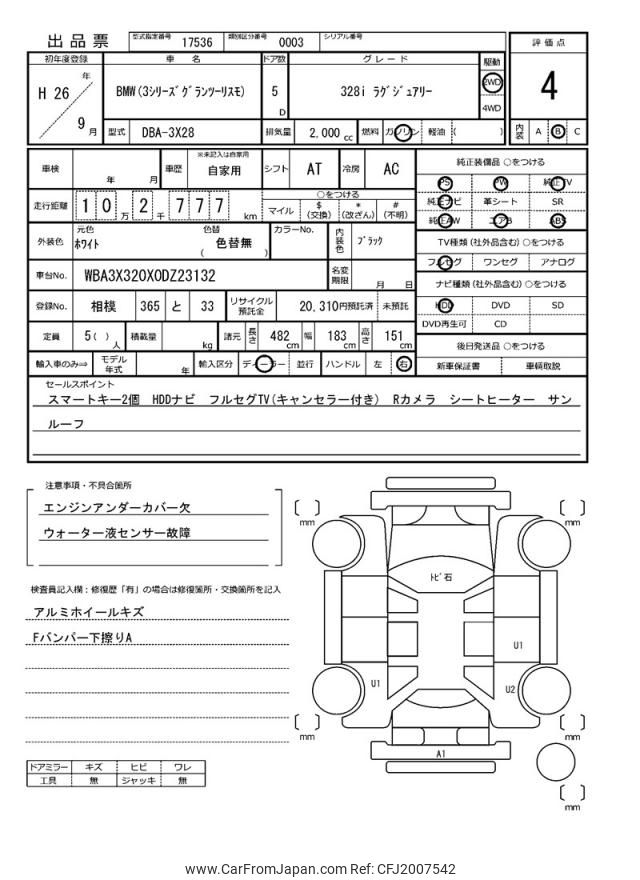 出品票 型式指定番号 17536 類別区分番号 0003 シリアル番号
初年度登録 車名 ドア数 グレード 駆動 評価点
H 26 年 9 月 BMW(3シリーズグランツーリスモ) 5 D 328i ラグジュアリー 2WD 4WD 4
型式 DBA-3X28 排気量 2,000 cc 燃料 ガソリン 軽油 ( ) 内装 A B C
車検 年 月 車歴 ※未記入は自家用 自家用 シフト AT 冷房 AC 純正装備品 ○をつける
PS PW 純正TV
走行距離 10万 2千 777 km ○をつける 純正ナビ 革シート SR
マイル $(交換) *(改ざん) #(不明) 純正AW エアB ABS
外装色 元色 ホワイト 色替 色替無 ( ) カラーNo. 内装色 ブラック TV種類(社外品含む)○をつける
フルセグ ワンセグ アナログ
車台No. WBA3X320X0DZ23132 名変期限 月 日 ナビ種類(社外品含む)○をつける
登録No. 相模 365 と 33 リサイクル預託金 20,310円預託済 未預託 HDD DVD SD
DVD再生可 CD
定員 5( )人 積載量 kg 諸元 長さ 482 cm 幅 183 cm 高さ 151 cm 後日発送品 ○をつける
輸入車のみ⇒ モデル年式 年 輸入区分 ディーラー 並行 ハンドル 左 右 新車保証書 車輌取説
セールスポイント
スマートキー2個 HDDナビ フルセグTV(キャンセラー付き) Rカメラ シートヒーター サン
ルーフ
注意事項・不具合箇所
エンジンアンダーカバー欠
ウォーター液センサー故障
検査員記入欄:修復歴「有」の場合は修復箇所・交換箇所を記入
アルミホイールキズ
Fバンパー下擦りA
ドアミラー キズ ヒビ ワレ
工具 無 ジャッキ 無
mm
mm
トビ石
U1
U1
U2
mm
mm
A1
mm
www.CarFromJapan.com Ref: CFJ2007542